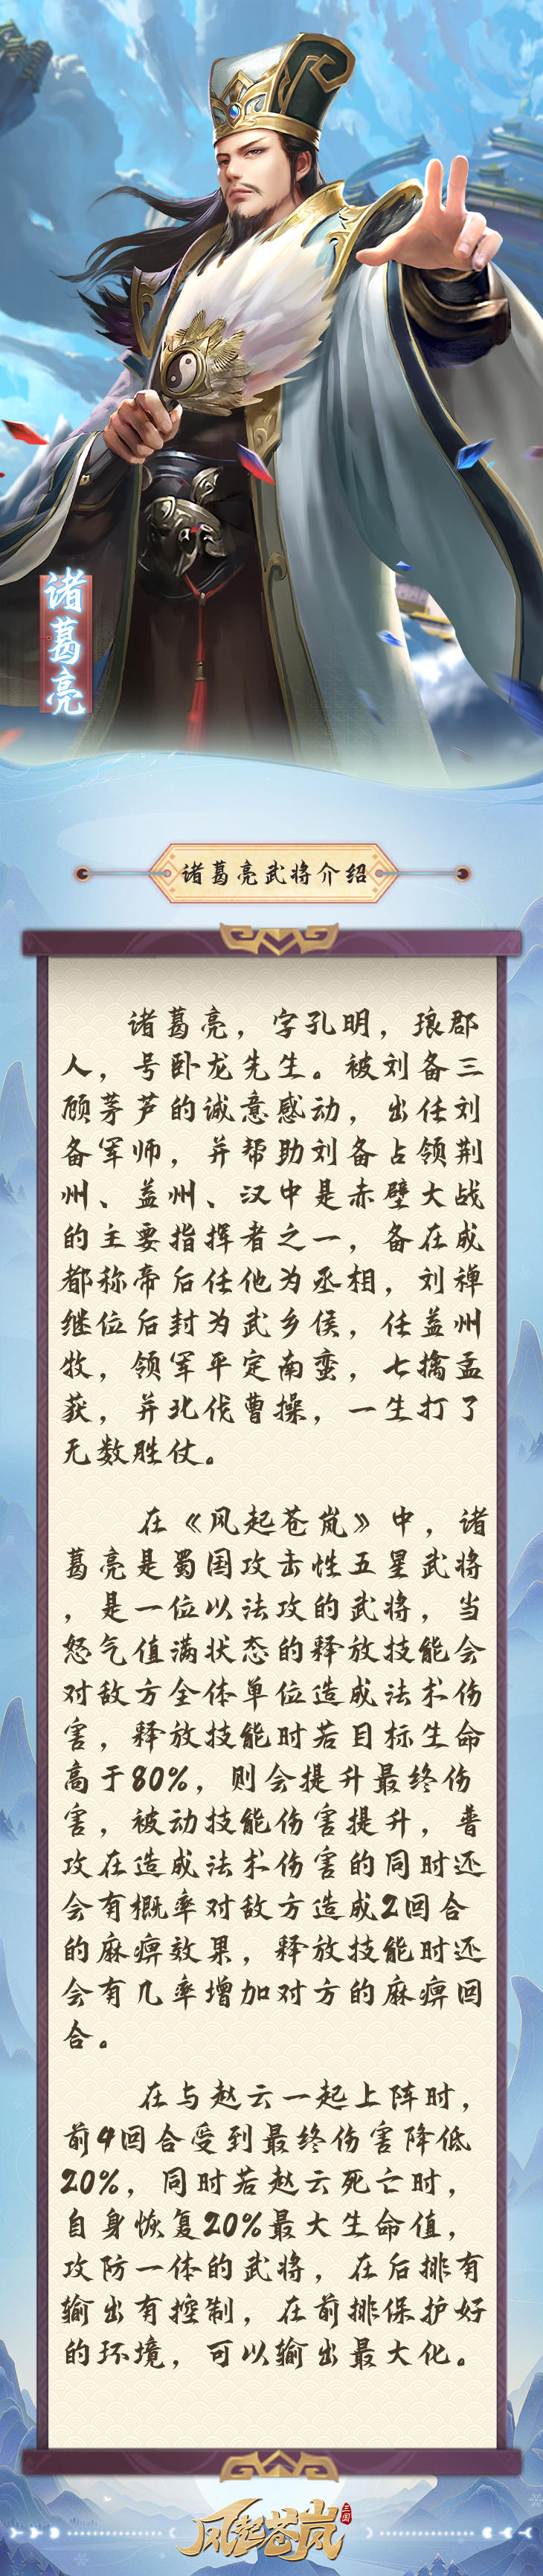 诸葛亮
诸葛亮武将介绍
诸葛亮，字孔明，琅郡
人，号卧龙先生。被刘备三
顾茅芦的诚意感动，出任刘
备军师，并帮助刘备占领荆
州、益州、汉中是赤壁大战
的主要指挥者之一，备在成
都称帝后任他为丞相，刘禅
继位后封为武乡侯，任益州
牧，领军平定南蛮，七擒孟
获，并北伐曹操，一生打了
无数胜仗。
在《风起苍岚》中，诸
葛亮是蜀国攻击性五星武将
，是一位以法攻的武将，当
怒气值满状态的释放技能会
对敌方全体单位造成法术伤
害，释放技能时若目标生命
高于80%，则会提升最终伤
害，被动技能伤害提升，普
攻在造成法术伤害的同时还
会有概率对敌方造成2回合
的麻痹效果，释放技能时还
会有几率增加对方的麻痹回
合。
在与赵云一起上阵时，
前4回合受到最终伤害降低
20%，同时若赵云死亡时，
自身恢复20%最大生命值，
攻防一体的武将，在后排有
输出有控制，在前排保护好
的环境，可以输出最大化。
风起苍岚
三国